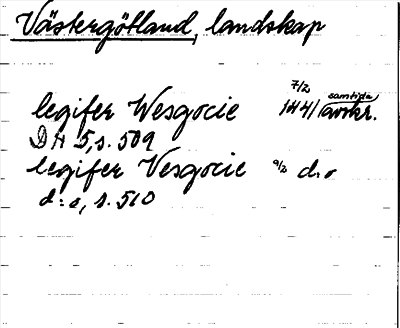 Västergötland, landskap
legifer Wesgocie 7/2 1441 (samtida) avskr.
DN 5, s. 509
legifer Vesgocie 9/2 d:o
d:o, s. 510